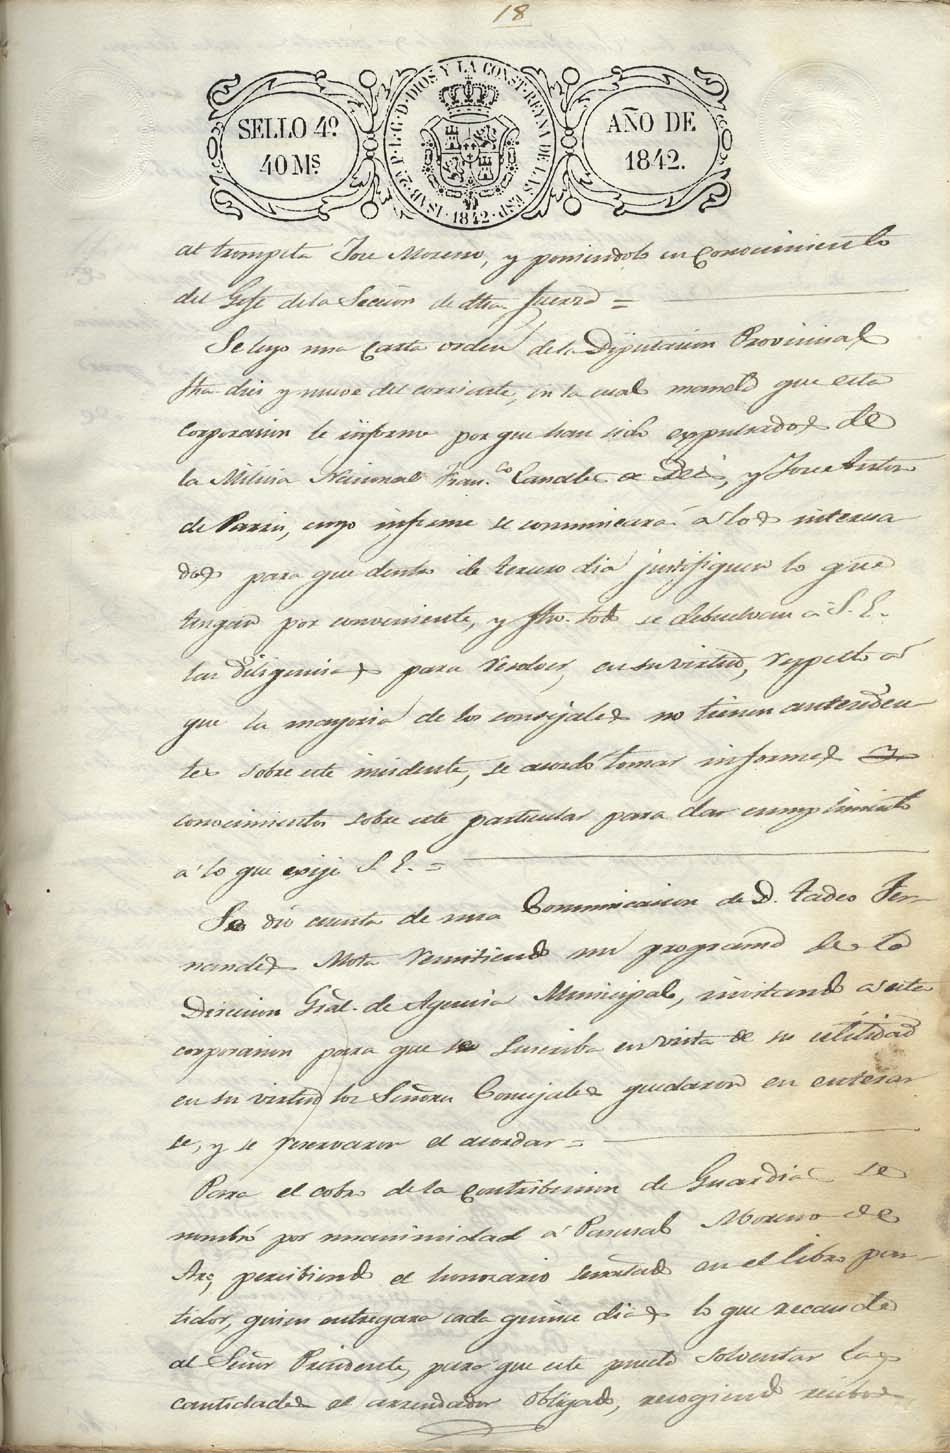 18
SELLO 4º
40 Ms.
ISAB. 2ª P. L. G. D. DIOS Y LA CONST. REYNA DE LAS ESP.
1842
AÑO DE
1842.
al trompeta Jose Moreno, y poniendolo en Conocimiento
del Gefe de la Seccion de dha fuerza =
Se leyo una Carta orden de la Diputacion Provincial
fha dies y nueve del corriente, en la cual manda que esta
corporacion le informe por que han sido expulsados de
la Milicia Nacional Fran.co y Jose Anton
de Parrin, cuyo informe se comunicará á los interesa
dos para que dentro de tercero dia justifiquen lo que
tengan por conveniente, y fho. todo se debuelvan á S. E.
las diligencias para resolver, en su virtud, respecto á
que la mayoria de los consejales no tienen anteceden
tes sobre este insidente, se acordó tomar informes y
conocimientos sobre este particular para dar cumplimiento
á lo que exije S. E. =
Se dió cuenta de una Comunicacion de D. Tadeo Fer-
nandes Mota remitiendo un programa de la
Direccion Gral. de Agencia Municipal, invitando a esta
corporacion para que se suscriba en vista de su utilidad
en su virtud los Señores Consejales quedaron en enterar
se, y se reservaron el acordar =
Para el cobro de la Contribucion de Guardia se
nombró por unanimidad á Pascual Moreno de
percibiendo el honorario señalado en el libro
tidor, quien entregara cada quince dias lo que recaude
al Señor Presidente, para que este pueda solventar las
cantidades al arrendador obligado, recogiendo recibos